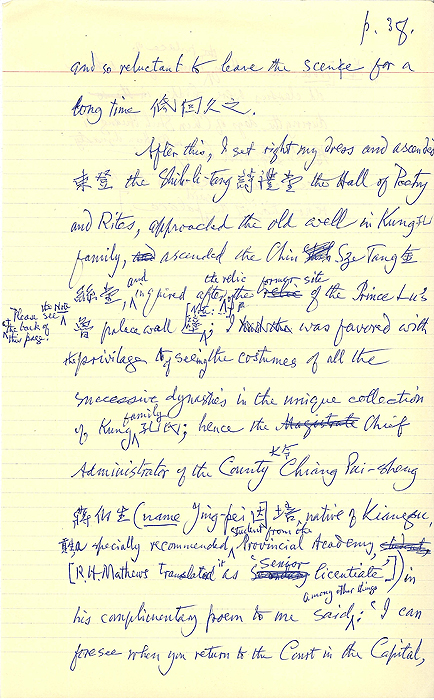 p. 38.
and so reluctant to leave the scence for a
long time 低回久之.
After this, I set right my dress and ascended
東登 the Shih-li-Tang 詩禮堂 the Hall of Poetry
and Rites, approached the old well in Kung 孔
family, ascended the Chin Sze Tang 金
絲堂, and inquired after the relic former site of the Prince Lu's
魯 palace wall; I was favored with
Please see the Note
the back of
this page.
the privilage of seeing the costumes of all the
successive dynasties in the unique collection
of Kung family 孔氏; hence the Magistrate Chief
Administrator of the County 大令 Chiang Pai-sheng
蔣伯生 (name Ying-pei 因培, native of Kiangsu,
a specially recommended student from the Provincial Academy,
[R.H. Mathews translated it as "Senior licentiate"]) in
his complimentary poem to me said, among other things: "I can
foresee when you return to the Court in the Capital,